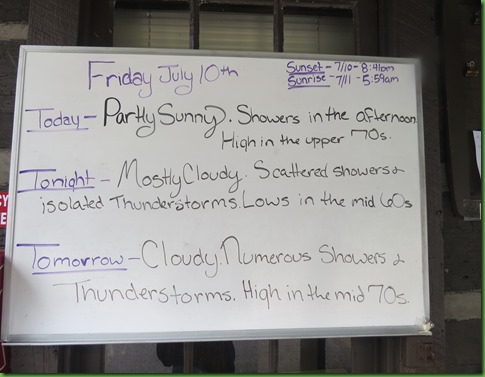 Friday July 10th
Sunset - 7/10 - 8:41pm
Sunrise - 7/11 - 5:59am
Today - Partly Sunny. Showers in the afternoon.
High in the upper 70s.
Tonight - Mostly Cloudy. Scattered showers &
isolated Thunderstorms. Lows in the mid 60s
Tomorrow - Cloudy. Numerous Showers &
Thunderstorms. High in the mid 70s.